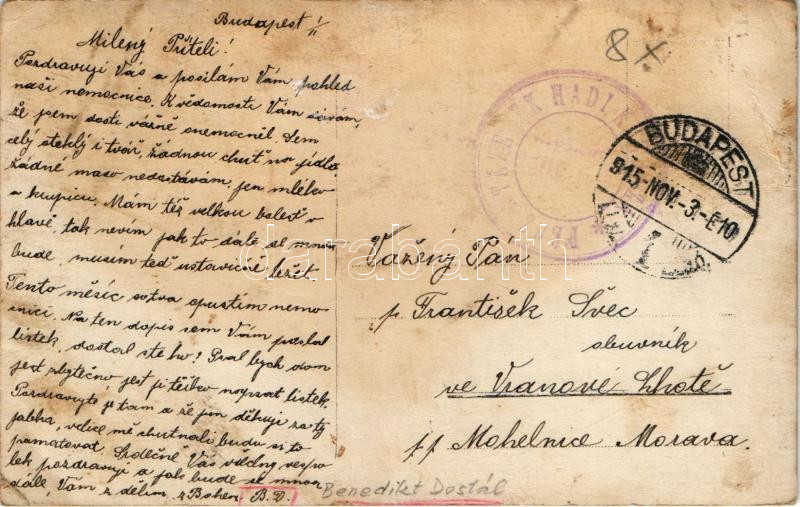 Budapest 1/11
Milený Příteli!
Pozdravuji Vás a posílám Vám pohled
naší nemocnice. K vědomosti Vám dávám,
že jsem dosti vážně onemocněl. Sem
celý oteklý i tvář, žádnou chuť na jídlo
žádné maso nedostávám, jen mléko
a krupicu. Mám též velkou bolesť v
hlavě, tak nevím jak to dále se mnou
bude, musím teď ustavičně ležet.
Tento měsíc sotva opustím nemo-
cnici. Na ten dopis sem Vám poslal
lístek, dostal ste ho? Psal bych vám
jest zbytečno, jest ji těžko napsat lístek.
Pozdravujte je tam a že jim děkuji za ty
jabka, velice mě chutnali budu si to
pamatovat. Srdečně Vás všecky vespo-
lek pozdravuji a jak bude se mnou
dále, Vám z dělím. z Bohem B. D.
8 X
BUDAPEST
915-NOV.-3.-E10
Vážený Pán
p. František Švec
obuvník
ve Vranové Lhotě
pp Mohelnice Morava.
Benedikt Dostál
darabanth